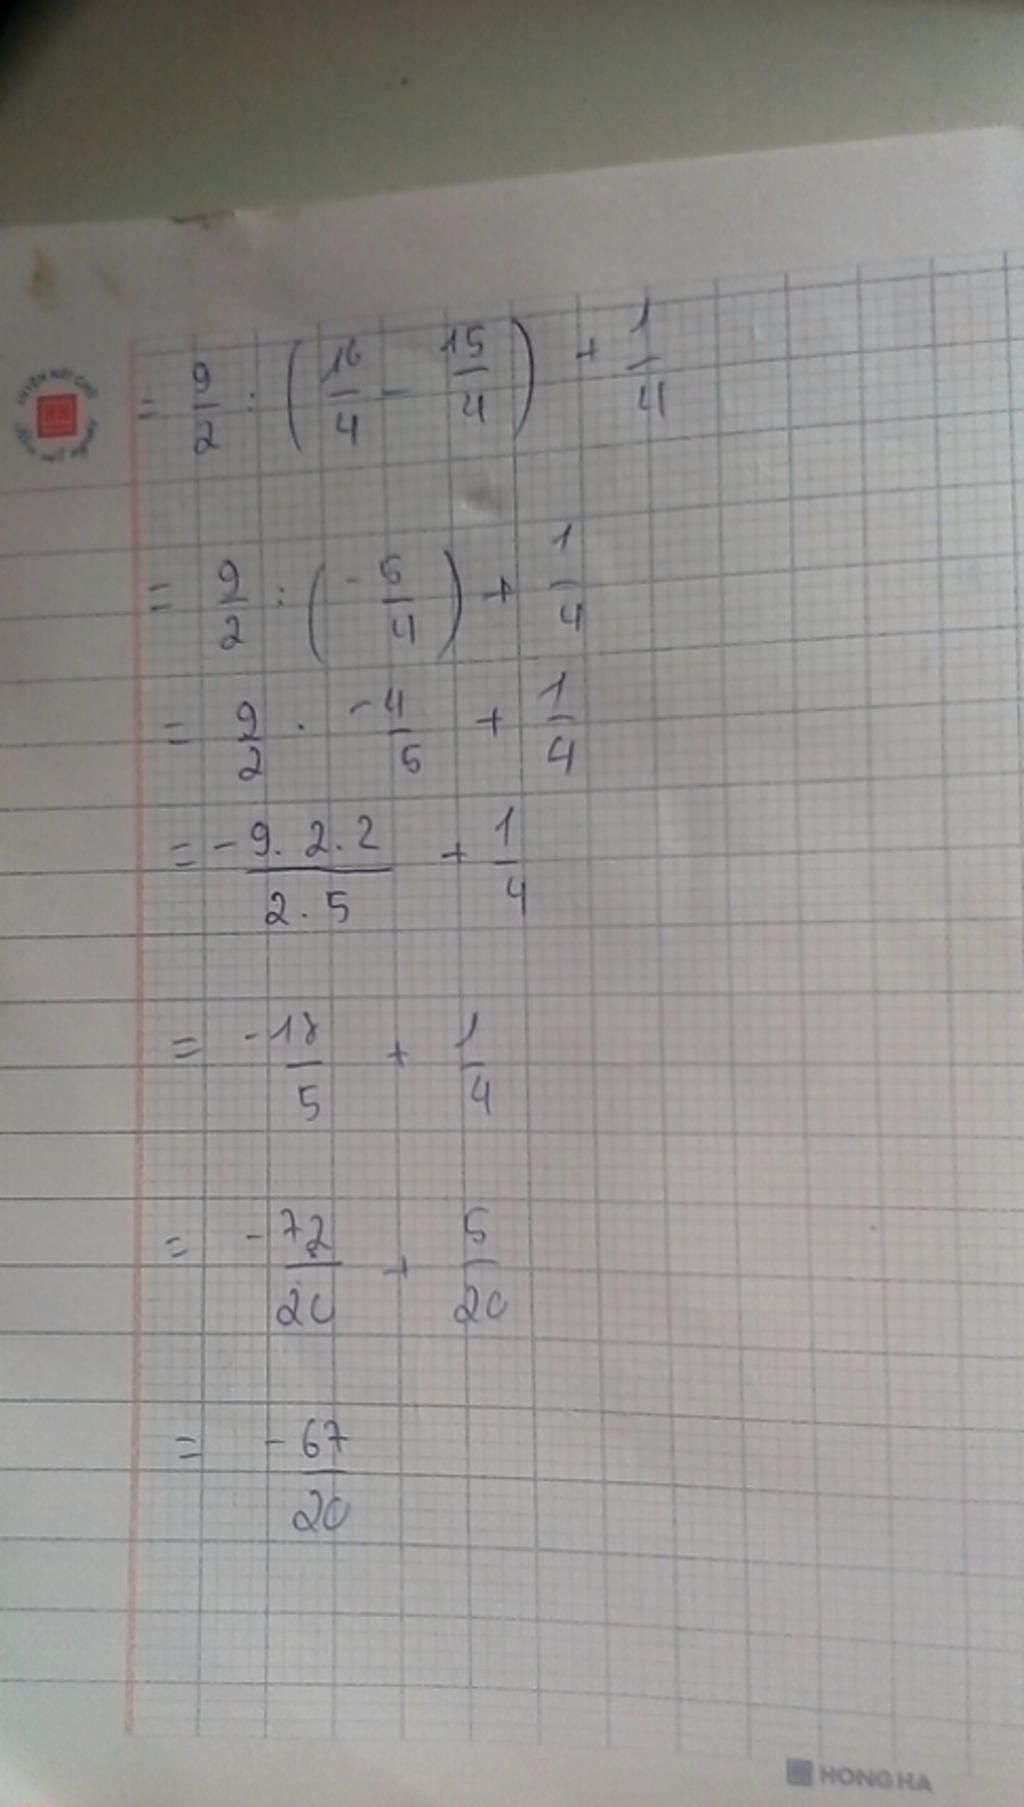 = 9/2 : (10/4 - 15/4) + 1/4
= 9/2 : (-5/4) + 1/4
= 9/2 . -4/5 + 1/4
= -9.2.2/2.5 + 1/4
= -18/5 + 1/4
= -72/20 + 5/20
= -67/20
HONG HA